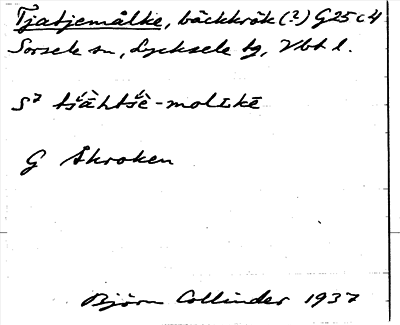 Tjatjemålke, bäckkrök (?) G25c4
Sorsele sn, Lycksele tg, Vbt l.
S7 tšāhtšē-molkē
G Åkroken
Björn Collinder 1937